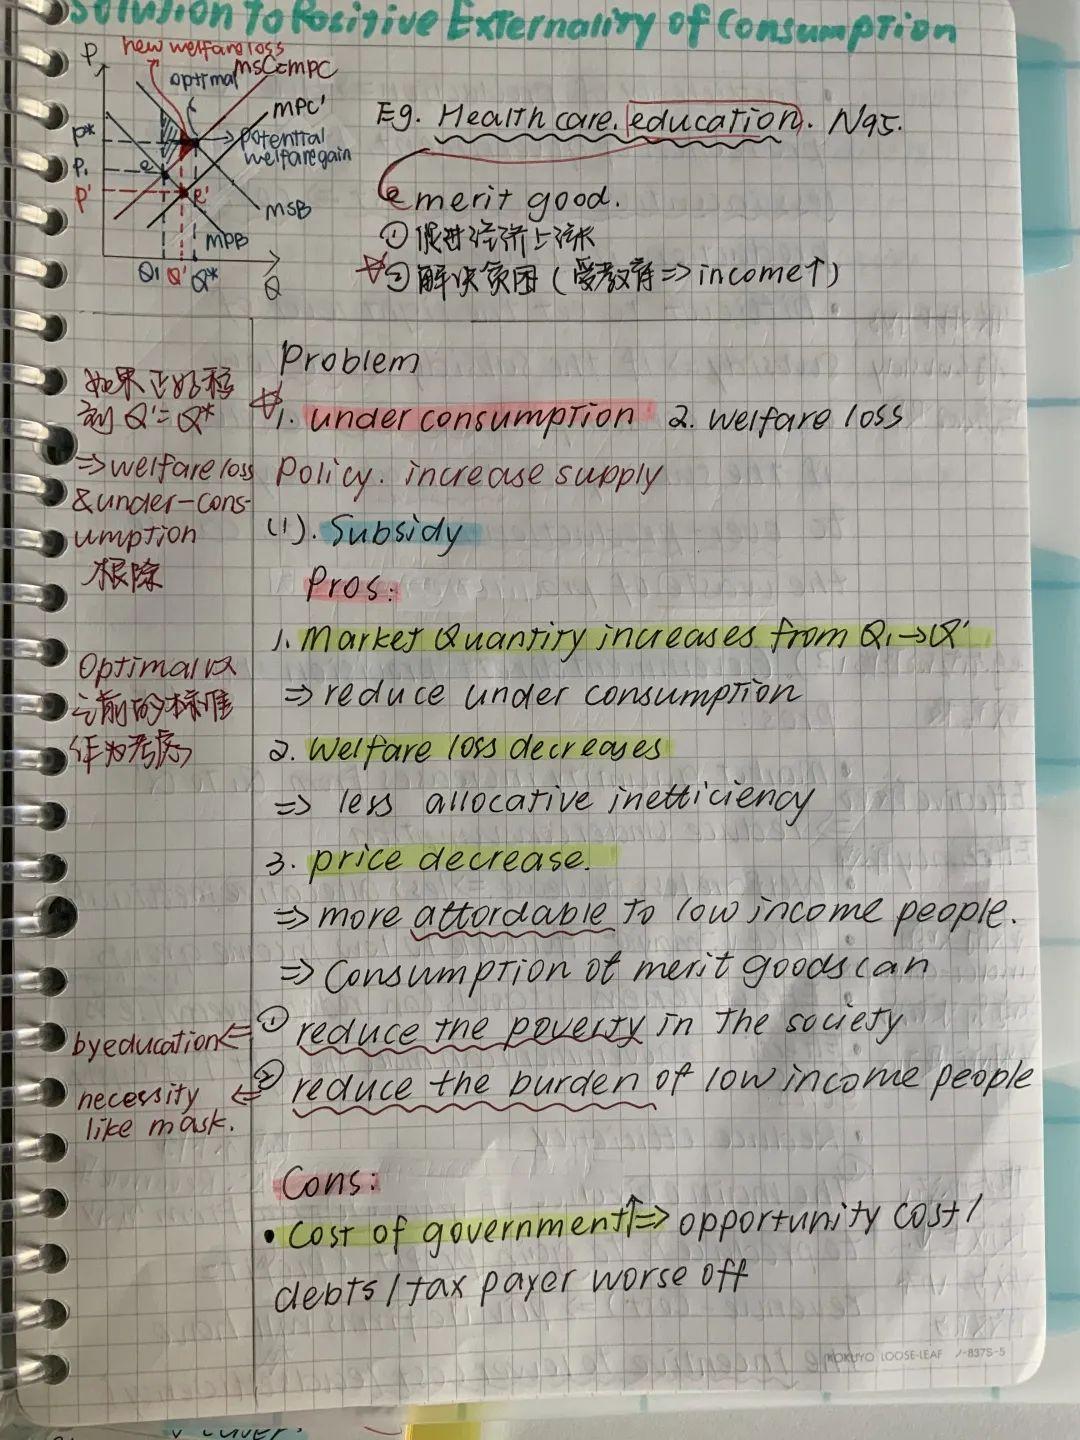 Solution to Positive Externality of Consumption
P
new welfare loss
optimal
MSC=MPC
MPC'
P*
potential
welfare gain
P1
e
P'
e'
MSB
MPB
Q1 Q' Q*
Q
Eg. Health care. education. N95.
merit good.
① 促进经济上涨
② 解决贫困 (受教育 => income↑)
如果正好移
到 Q'=Q*
=> welfare loss
& under-cons-
umption
根除
Optimal以
之前的标准
作为考虑
Problem
1. under consumption 2. welfare loss
Policy. increase supply
(1). Subsidy
Pros:
1. Market Quantity increases from Q1→Q'
=> reduce under consumption
2. welfare loss decreases
=> less allocative inefficiency
3. price decrease.
=> more affordable to low income people.
=> Consumption of merit goods can
① reduce the poverty in the society
② reduce the burden of low income people
by education <=
necessity <=
like mask.
Cons:
• Cost of government↑=> opportunity cost /
debts / tax payer worse off
KOKUYO LOOSE-LEAF ノ-837S-5